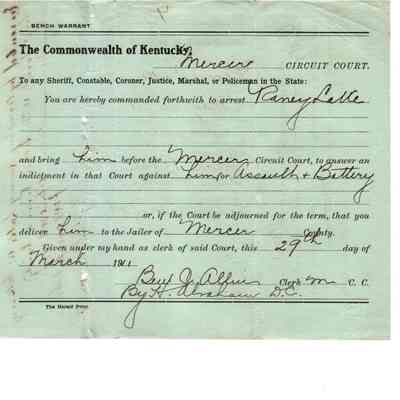 BENCH WARRANT
The Commonwealth of Kentucky,
Mercer CIRCUIT COURT.
To any Sheriff, Constable, Coroner, Justice, Marshal, or Policeman in the State:
You are hereby commanded forthwith to arrest Raney Latte
and bring him before the Mercer Circuit Court, to answer an
indictment in that Court against him for Assault & Battery
or, if the Court be adjourned for the term, that you
deliver him to the Jailer of Mercer County.
Given under my hand as clerk of said Court, this 29th day of
March 191
Ben J. Allin Clerk M C. C.
By H. D. C.
The Herald Print.